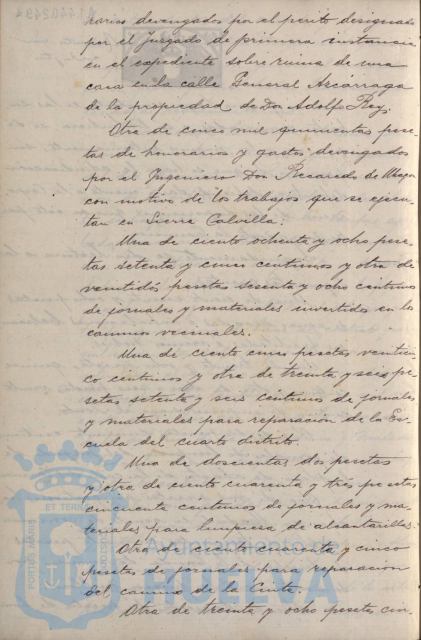 norarios devengados por el perito designado
por el Juzgado de primera instancia
en el expediente sobre ruina de una
casa en la calle General Azcárraga
de la propiedad de Don Adolfo Rey.
Otra de cinco mil quinientas pese-
tas de honorarios y gastos devengados
por el Ingeniero Don Recaredo de
con motivo de los trabajos que se ejecu-
tan en Sierra Calvilla.
Una de ciento ochenta y ocho pese-
tas setenta y cinco céntimos y otra de
veintidós pesetas sesenta y ocho céntimos
de jornales y materiales invertidos en los
caminos vecinales.
Una de ciento cinco pesetas veintici-
co céntimos y otra de treinta y seis pe-
setas setenta y seis céntimos de jornales
y materiales para reparación de la Es-
cuela del cuarto distrito.
Una de doscientas dos pesetas
y otra de ciento cuarenta y tres pesetas
cincuenta céntimos de jornales y ma-
teriales para limpieza de alcantarillas.
Otra de ciento cuarenta y cinco
pesetas de jornales para reparación
del camino de la Cinta.
Otra de treinta y ocho pesetas cin-
PORTUS MARIS
ET TERRAE
CUSTODIA
Ayuntamiento de
HUELVA